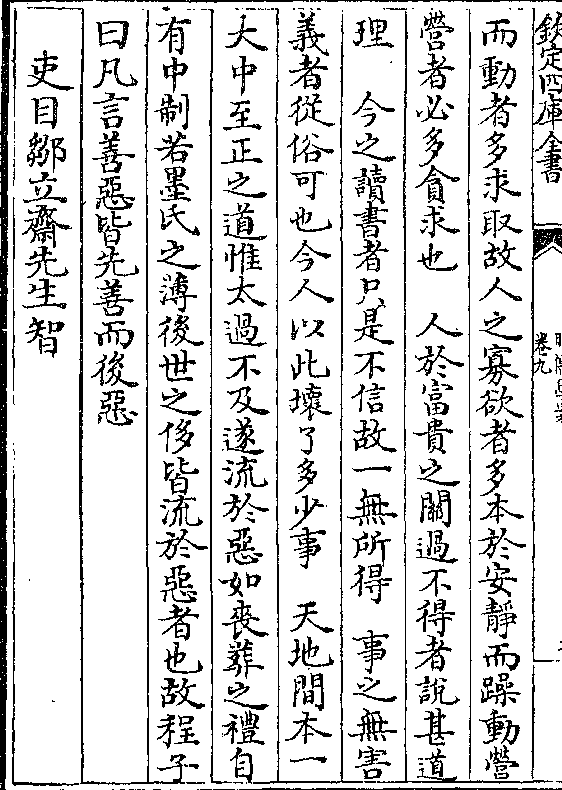 欽定四庫全書
卷九
而動者多求取故人之寡欲者多本於安靜而躁動營
營者必多貪求也　人於富貴之關過不得者說甚道
理　今之讀書者只是不信故一無所得　事之無害
義者從俗可也今人以此壞了多少事　天地間本一
大中至正之道惟太過不及遂流於惡如喪葬之禮自
有中制若墨氏之薄後世之侈皆流於惡者也故程子
曰凡言善惡皆先善而後惡
吏目鄒立齋先生智